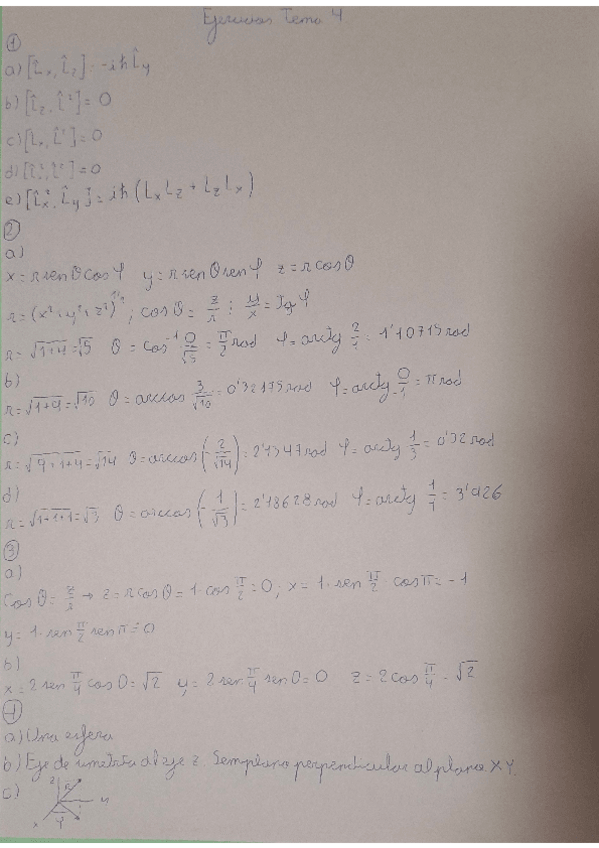 Ejercicios Tema 4
①
a) [L̂x, L̂z] = -iħ L̂y
b) [L̂z, L̂²] = 0
c) [Lx, L̂²] = 0
d) [L̂², L̂²] = 0
e) [L̂x², L̂y] = iħ (Lx Lz + Lz Lx)
②
a)
x = r sen θ cos φ y = r sen θ sen φ z = r cos θ
r = (x² + y² + z²)^1/2, cos θ = z/r ; y/x = Tg φ
r = √1+4 = √5 θ = cos⁻¹ 0/√5 = π/2 rad φ = arctg 2/1 = 1'10715 rad
b)
r = √1+9 = √10 θ = arccos 3/√10 = 0'32175 rad φ = arctg 0/-1 = π rad
c)
r = √9+1+4 = √14 θ = arccos (-2/√14) = 2'1347 rad φ = arctg 1/3 = 0'32 rad
d)
r = √1+1+1 = √3 θ = arccos (-1/√3) = 2'18628 rad φ = arctg 1/1 = 3'926
③
a)
Cos θ = z/r → z = r cos θ = 1·cos π/2 = 0; x = 1·sen π/2 cos π = -1
y = 1·sen π/2 sen π = 0
b)
x = 2 sen π/4 cos 0 = √2 y = 2 sen π/4 sen 0 = 0 z = 2 cos π/4 = √2
④
a) Una esfera
b) Eje de simetría al eje z. Semiplano perpendicular al plano XY.
c)
z r
y
x φ